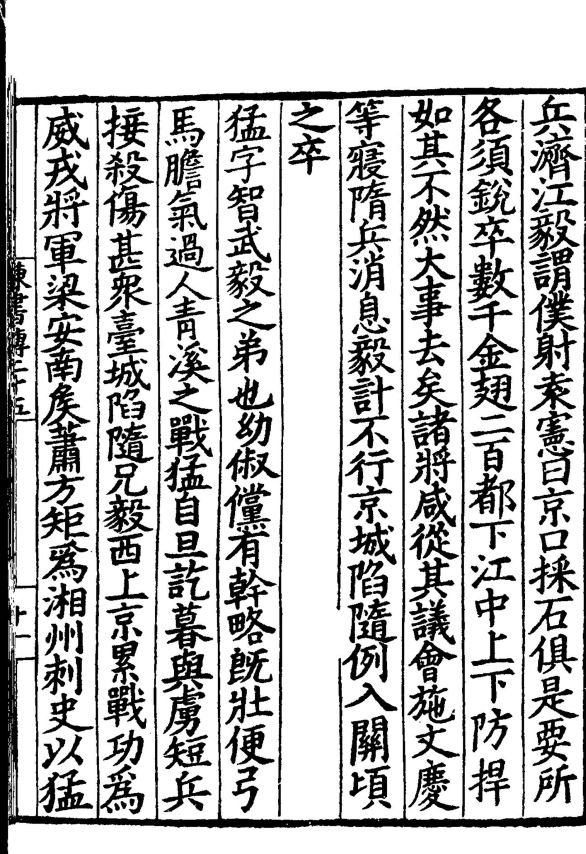 兵濟江毅謂僕射袁憲曰京口採石俱是要所
各須銳卒數千金翅二百都下江中上下防捍
如其不然大事去矣諸將咸從其議會施文慶
等寢隋兵消息毅計不行京城陷隨例入關頃
之卒
猛字智武毅之弟也幼俶儻有幹略旣壯便弓
馬膽氣過人青溪之戰猛自旦訖暮與虜短兵
接殺傷甚衆臺城陷隨兄毅西上京累戰功爲
威戎將軍梁安南矦蕭方矩爲湘州刺史以猛
陳書傳二十五
十一